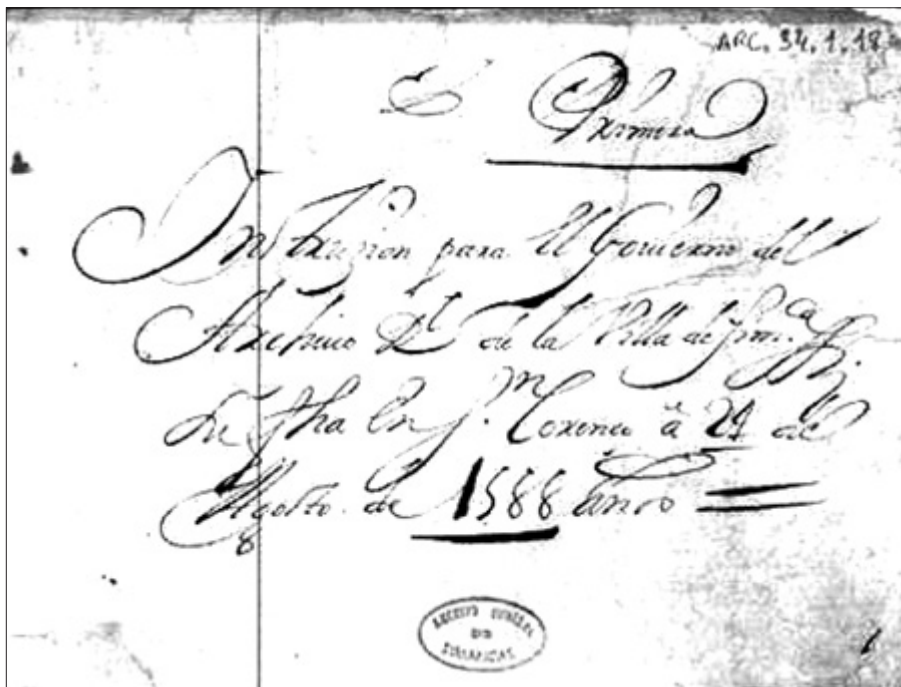 ARC. 34.1.18
Primera
Instruzion para el Gouierno del
Archiuo Rl de la Villa de
fha en Sn Lorenco à 24 de
Agosto de 1588 años
ARCHIVO GENERAL
DE
SIMANCAS